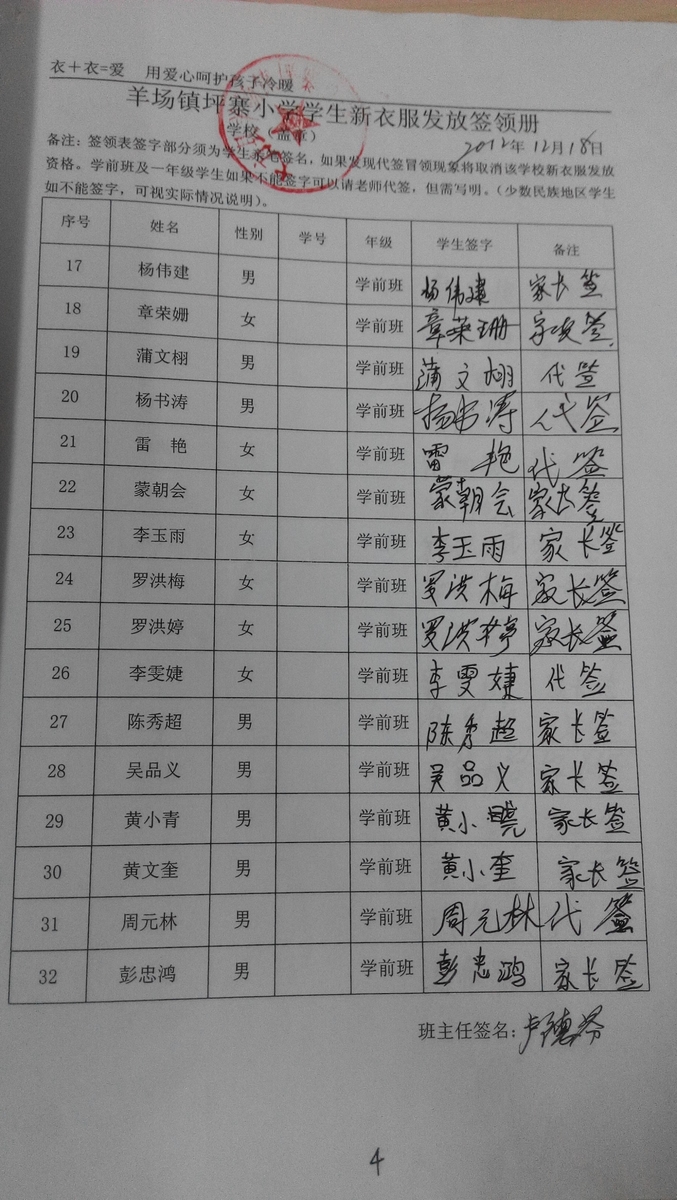 衣＋衣=爱 用爱心呵护孩子冷暖
羊场镇坪寨小学学生新衣服发放签领册
学校（盖章） 2012年12月18日
备注：签领表签字部分须为学生亲笔签名，如果发现代签冒领现象将取消该学校新衣服发放
资格。学前班及一年级学生如果不能签字可以请老师代签，但需写明。（少数民族地区学生
如不能签字，可视实际情况说明）。
序号 姓名 性别 学号 年级 学生签字 备注
17 杨伟建 男 学前班 杨伟建 家长签
18 章荣姗 女 学前班 章荣珊 家长签
19 蒲文栩 男 学前班 蒲文栩 代签
20 杨书涛 男 学前班 杨书涛 代签
21 雷 艳 女 学前班 雷 艳 代签
22 蒙朝会 女 学前班 蒙朝会 家长签
23 李玉雨 女 学前班 李玉雨 家长签
24 罗洪梅 女 学前班 罗洪梅 家长签
25 罗洪婷 女 学前班 罗洪 家长签
26 李雯婕 女 学前班 李雯婕 代签
27 陈秀超 男 学前班 陈秀超 家长签
28 吴品义 男 学前班 吴品义 家长签
29 黄小青 男 学前班 黄小 家长签
30 黄文奎 男 学前班 黄小奎 家长签
31 周元林 男 学前班 周元林 代签
32 彭忠鸿 男 学前班 彭忠鸿 家长签
班主任签名：卢德芬
4